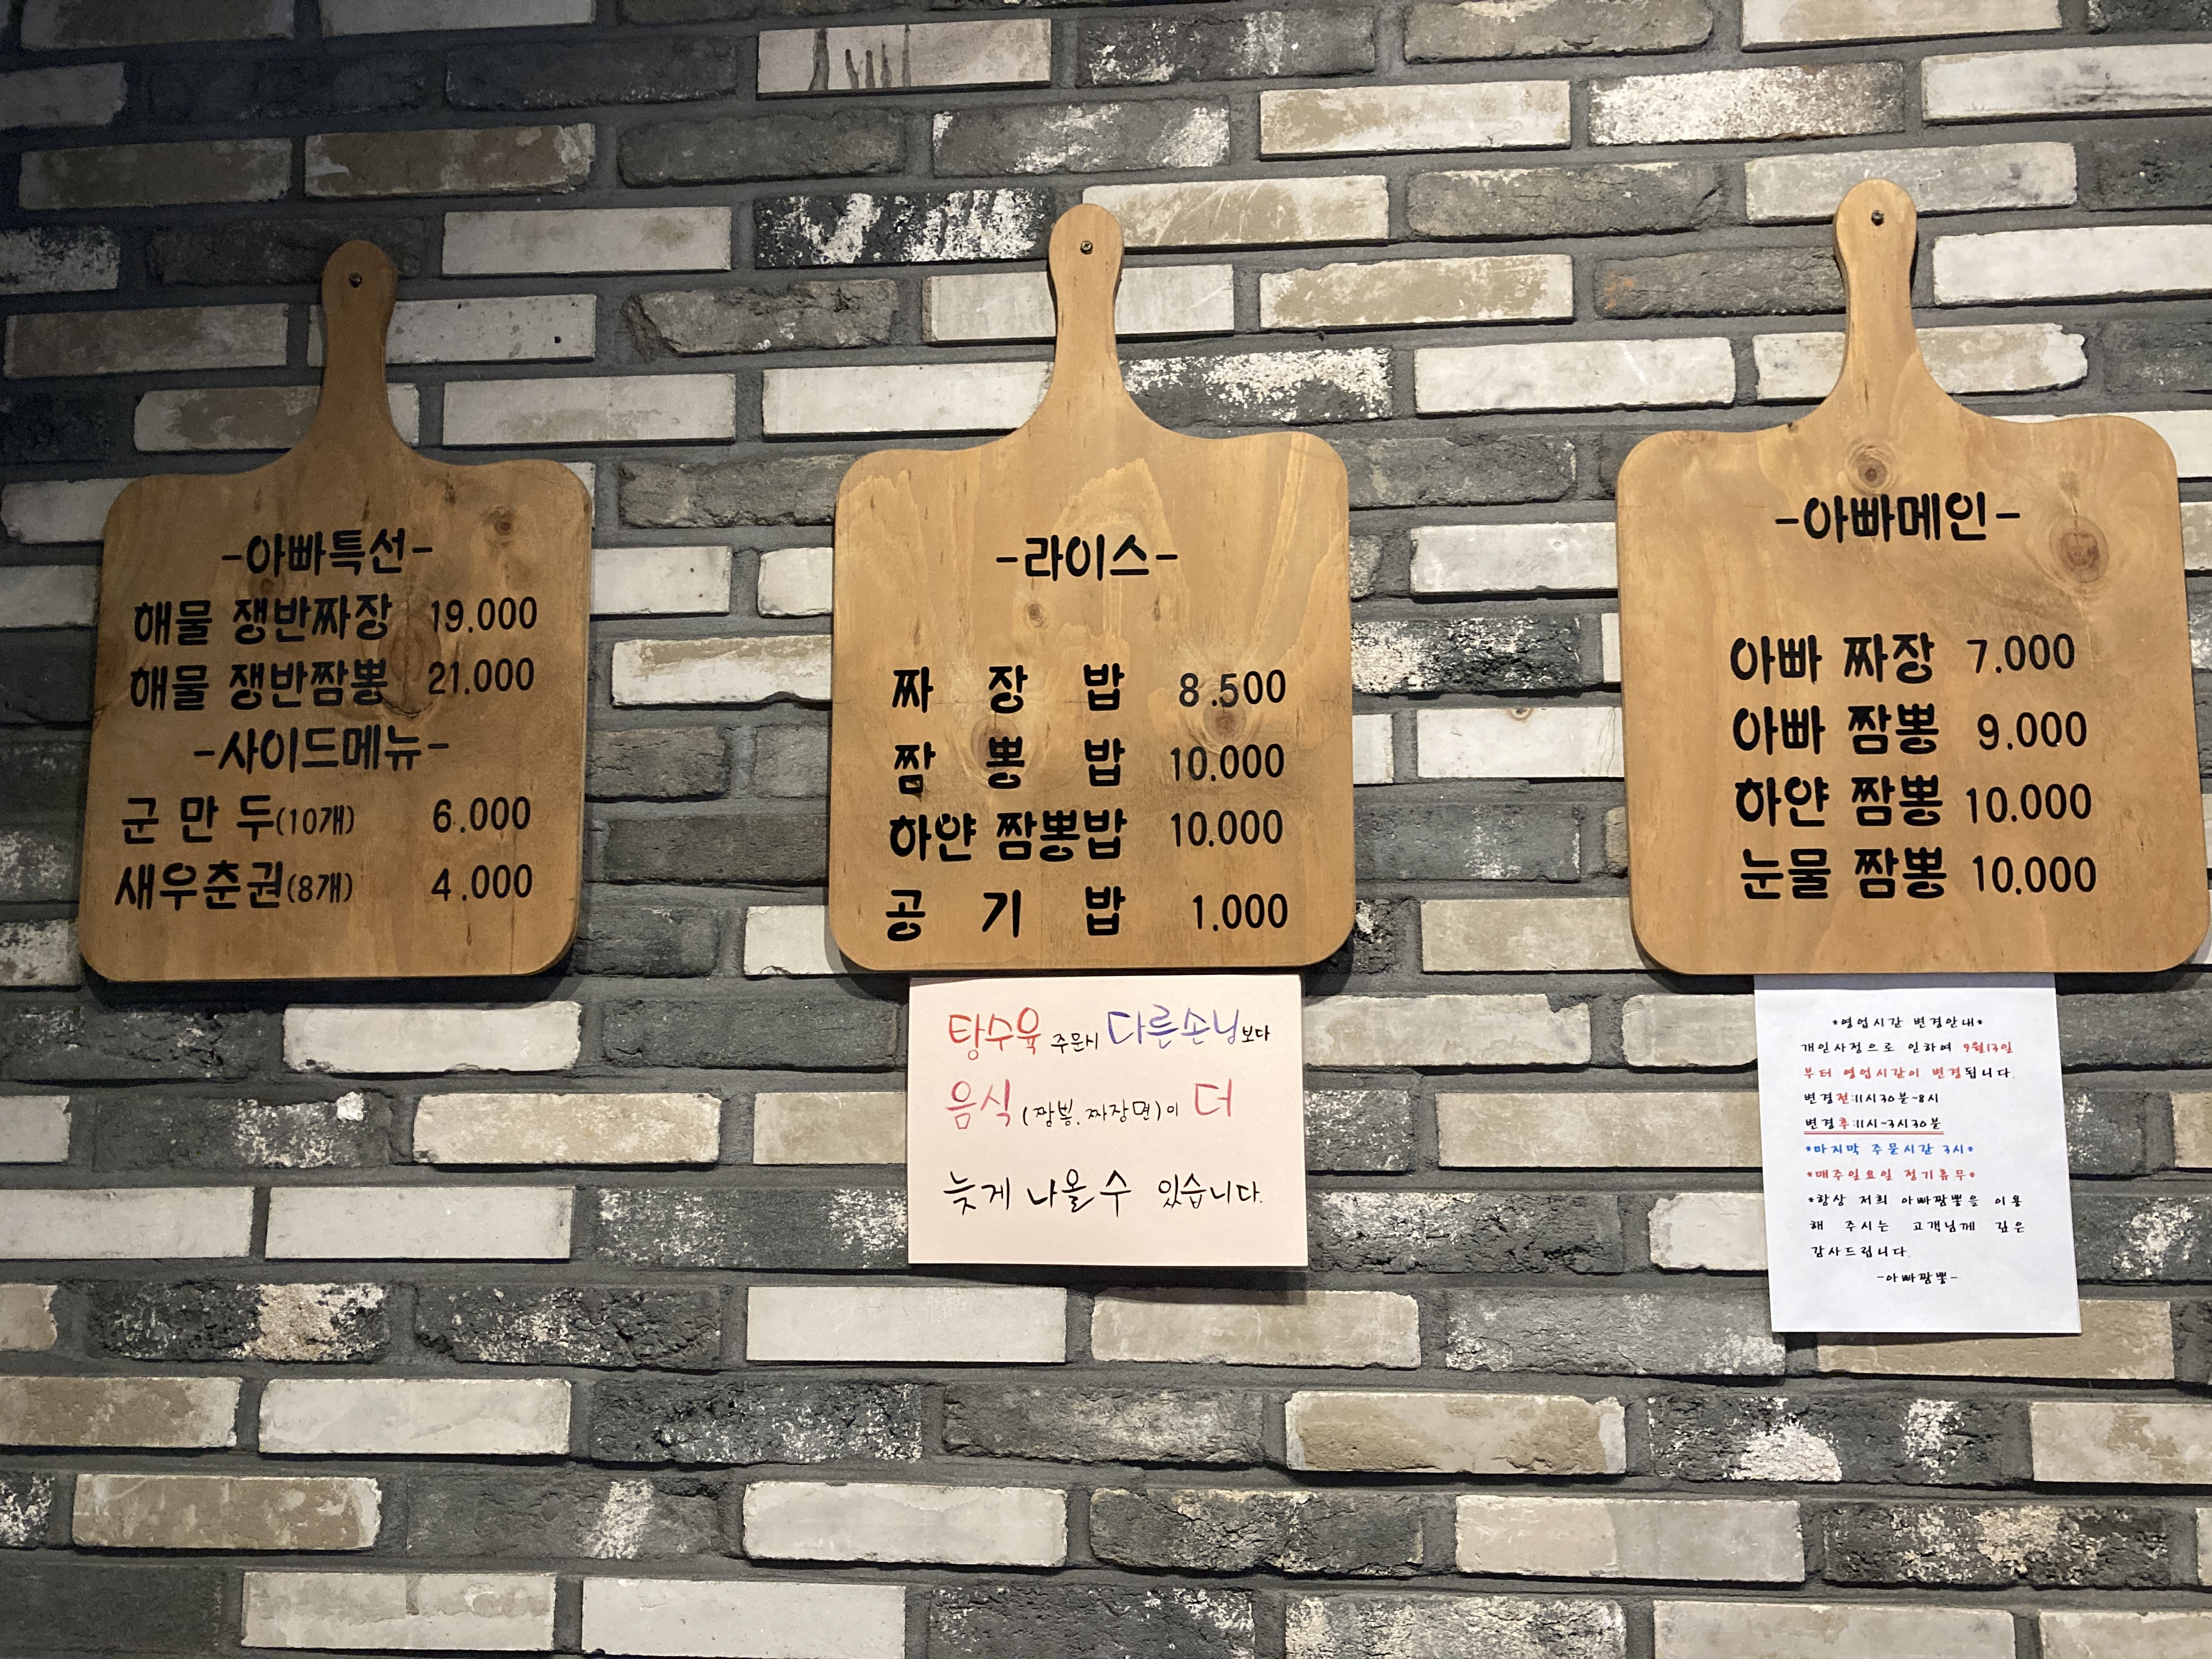 -아빠특선-
해물 쟁반짜장 19.000
해물 쟁반짬뽕 21.000
-사이드메뉴-
군 만 두(10개) 6.000
새우춘권(8개) 4.000
-라이스-
짜 장 밥 8.500
짬 뽕 밥 10.000
하얀 짬뽕밥 10.000
공 기 밥 1.000
탕수육 주문시 다른손님보다
음식 (짬뽕, 짜장면)이 더
늦게 나올 수 있습니다.
-아빠메인-
아빠 짜장 7.000
아빠 짬뽕 9.000
하얀 짬뽕 10.000
눈물 짬뽕 10.000
*영업시간 변경안내*
개인사정으로 인하여 9월13일
부터 영업시간이 변경됩니다.
변경전:11시30분~8시
변경후:11시~3시30분
*마지막 주문시간 3시*
*매주일요일 정기휴무*
*항상 저희 아빠짬뽕을 이용
해 주시는 고객님께 깊은
감사드립니다.
-아빠짬뽕-